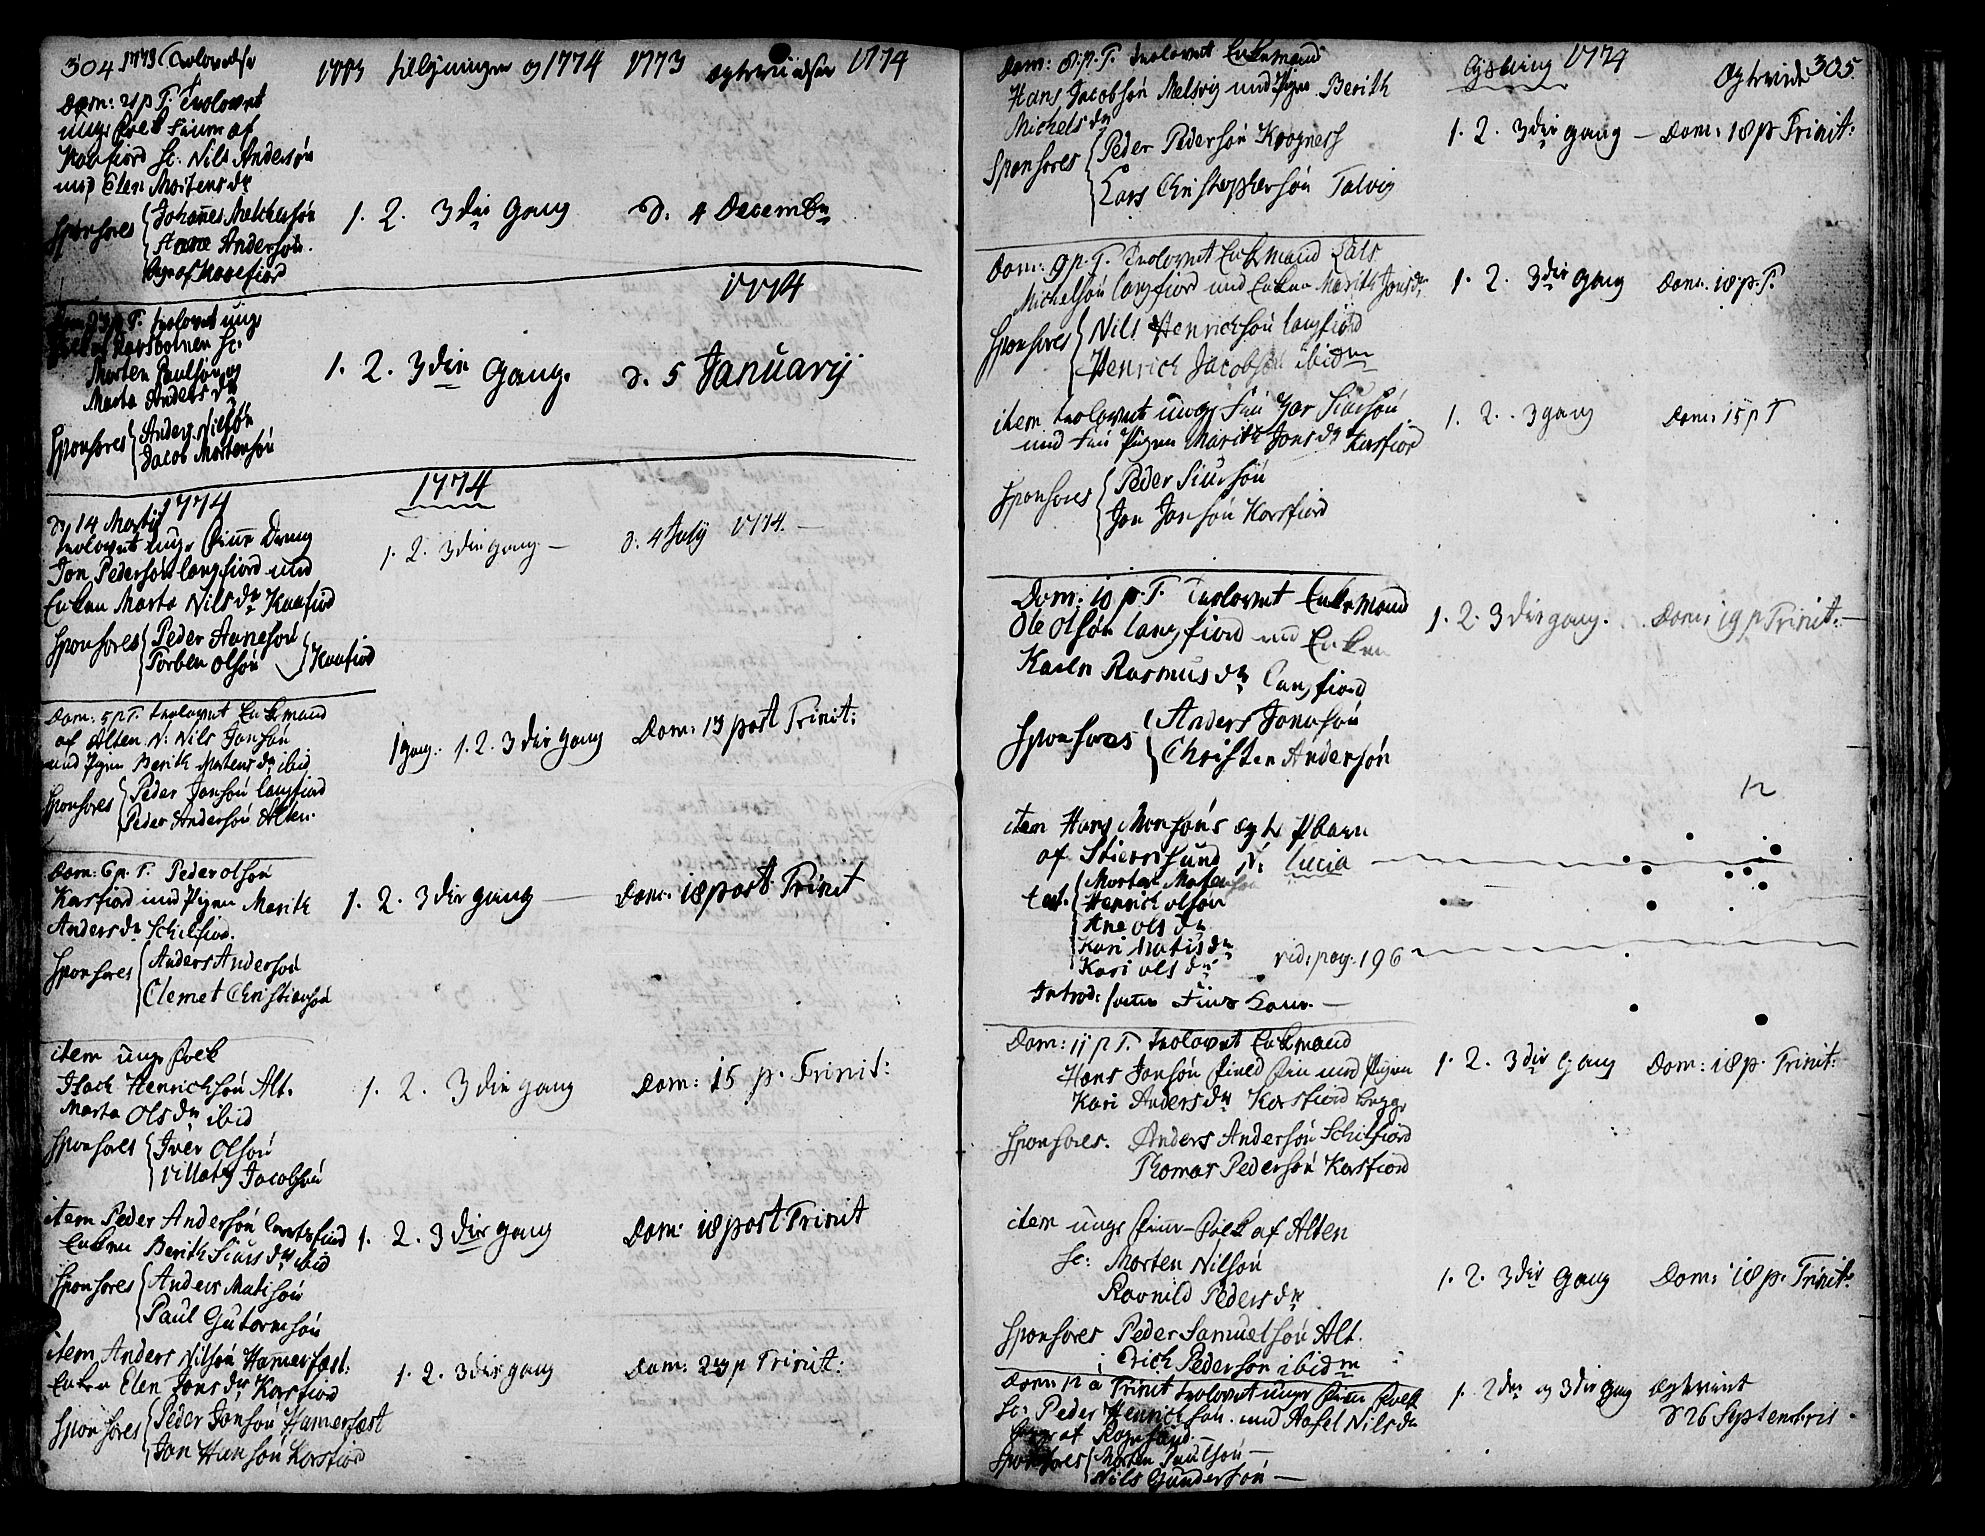 304 1773 Trolovelse
1773 Lillysninger og 1774 1773 Ægteviidse 1774
Dom: 21 p T. Trolovet
unge Folk Finner af
Kaafiord Sc. Nils Andersøn
und Elen Mortens dr
Sponsores Johannes Melchersøn
Anne Andersøn.
begge af Kaaefiord
1. 2. 3die Gang
d. 4 Decembr
1774
Dom 23 p T. trolovet unge
Folk af Karsbotnen Sc.
Morten Paulsøn og
Marta Anders dr
Sponsores Anders Nilsøn
Jacob Mortensøn
1. 2. 3die Gang.
d. 5 Januarij
1774
1774
d 14 Martij
trolovet unge Finne Dreng
Jon Pedersøn langfiord und
Enken Marta Nils dr Kaafiord
Sponsores Peder Arnesøn
Torben Olsøn Kaafiord
1. 2 3die gang —
d. 4 July 1774. —
Dom: 5 p T. trolovet Enkemand
af Alten N. Nils Jonsøn
und Pigen Berith Mortens dr ibid
Sponsores Peder Jonsøn langfiord
Peder Andersøn Alten.
1 gang. 1. 2. 3die gang
Dom: 13 post Trinit:
Dom: 6 p. T. Peder olsøn
Korsfiord und Pigen Marith
Anders dr Schilfior.
Sponsores Anders Andersøn
Clemet Christiansøn
1. 2. 3die gang —
Dom: 18 post Trinit
item unge Folk
Isack Henrichsøn Alt.
Marta Ols dr ibid
Sponsores Iver Olsøn
Jacobsøn
1. 2. 3die gang
Dom: 15 p. Trinit:
item Peder Andersøn
Enken Berith Siurs dr ibid
Sponsores Anders Matisøn
Paul Gutormsøn
1. 2. 3die gang
Dom: 18 post Trinit
item Anders Nilsøn Hamerfest:
Enken Elen Jons dr Korsfiord
Sponsores Peder Jonsøn Hamerfæst
Jon Hansøn Korsfiord
1. 2. 3die gang
Dom: 23 p Trinit:
Dom: 8. p. T. trolovet Enkemand
Hans Jacobsøn Melsvig und Pigen Berith
Michels dr
Sponsores Peder Pedersøn Krogness
Lars Christophersøn Talvig
Lysning 1774
Ægteviede 305.
1. 2. 3die gang — Dom: 18 p Trinit:
Dom: 9 p. T. trolovet Enkemand Lars
Michelsøn langfiord und Enken Marith Jons dr
Sponsores Nils Henrichsøn langfiord
Henrich Jacobsøn ibidm
1. 2. 3die gang Dom. 18 p. T.
item trolovet unge Fin Siursøn
und Fin Pigen Marith Jons dr Korsfior
Sponsores Peder Siursøn
Jon Jonsøn Korsfiord
1. 2. 3 gang Dom: 15 p T
Dom: 10 p. T. trolovet Enkemand
Ole Olsøn langfiord und Enken
Karen Rasmus dr langfiord
Sponsores Anders Jonasøn
Christen Andersøn
1. 2. 3die gang. Dom: 19 p Trinit: —
12
item Hans Monsøns ægte Pbarn
af Stiernsund N: Lucia
test. Morten
Henrich olsøn
Ane ols dr
Kari Matis dr
Kari ols dr
vid: pag. 196
Introd:
Dom: 11 p T. trolovet Enkemand
Hans Jonsøn Field Fin und Pigen
Kari Anders dr Korsfiord begge
Sponsores. Anders Andersøn Schilfiord
Thomas Pedersøn Korsfiord
1. 2. 3die Gang Dom: 18 p. Trinit:
item unge Finne-Folk af Alten
Sc: Morten Nilsøn
Ravnild Peders dr
Sponsores Peder Samuelsøn Alt.
Erich Pedersøn ibidm
1. 2. 3die gang Dom: 18 p. Trinit:
Dom: 12 a Trinit trolovet unge Finne Folk
Sc: Peder Henrichsøn und Assel Nils dr
begge af Rognsund. —
Sponsores Morten Paulsøn —
Nils Gundersøn —
1. 2den og 3die gang Ægteviet
d 26 Septembris.